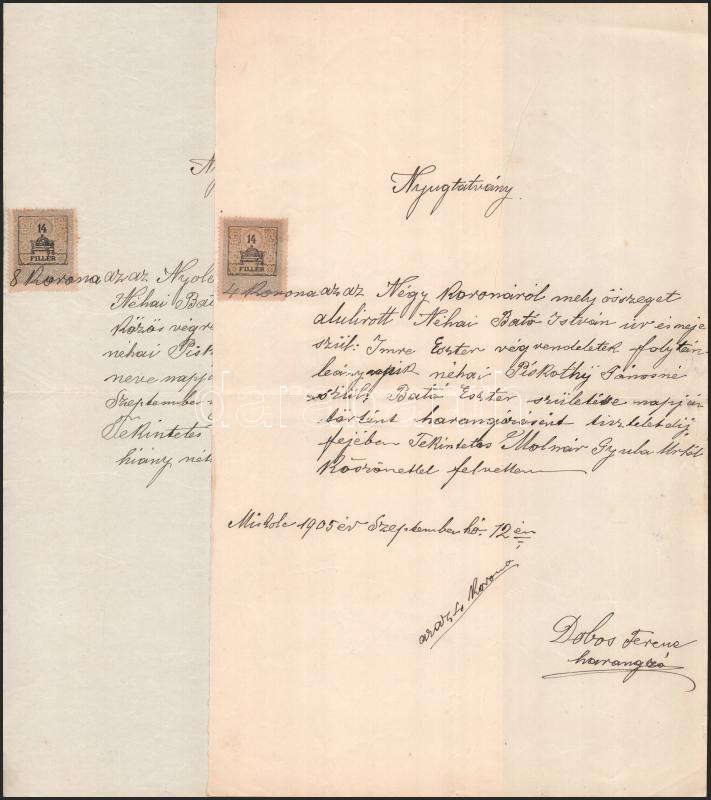 14
FILLÉR
8 Korona az az Nyolc
Néhai Bató
Közös végre
néhai Pisk
neve napja
Szeptember
Tekintetes
hiány nél
Nyugtatvány.
14
FILLÉR
4 Korona az az Négy Koronáról mely összeget
alulirott Néhai Bató István úr és neje
szül: Imre Eszter végrendeletek folytán
leány néhai Piskothy Jánosné
szül: Bató Eszter születise napján
történt harangozásért tiszteletdíj
fejében Tekintetes Molnár Gyula Urtól
Köszönettel felvettem
Miskolc 1905 év Szeptember hó 12 én
az az 4 Korona
Dobos Ferenc
harangozó
darabanth